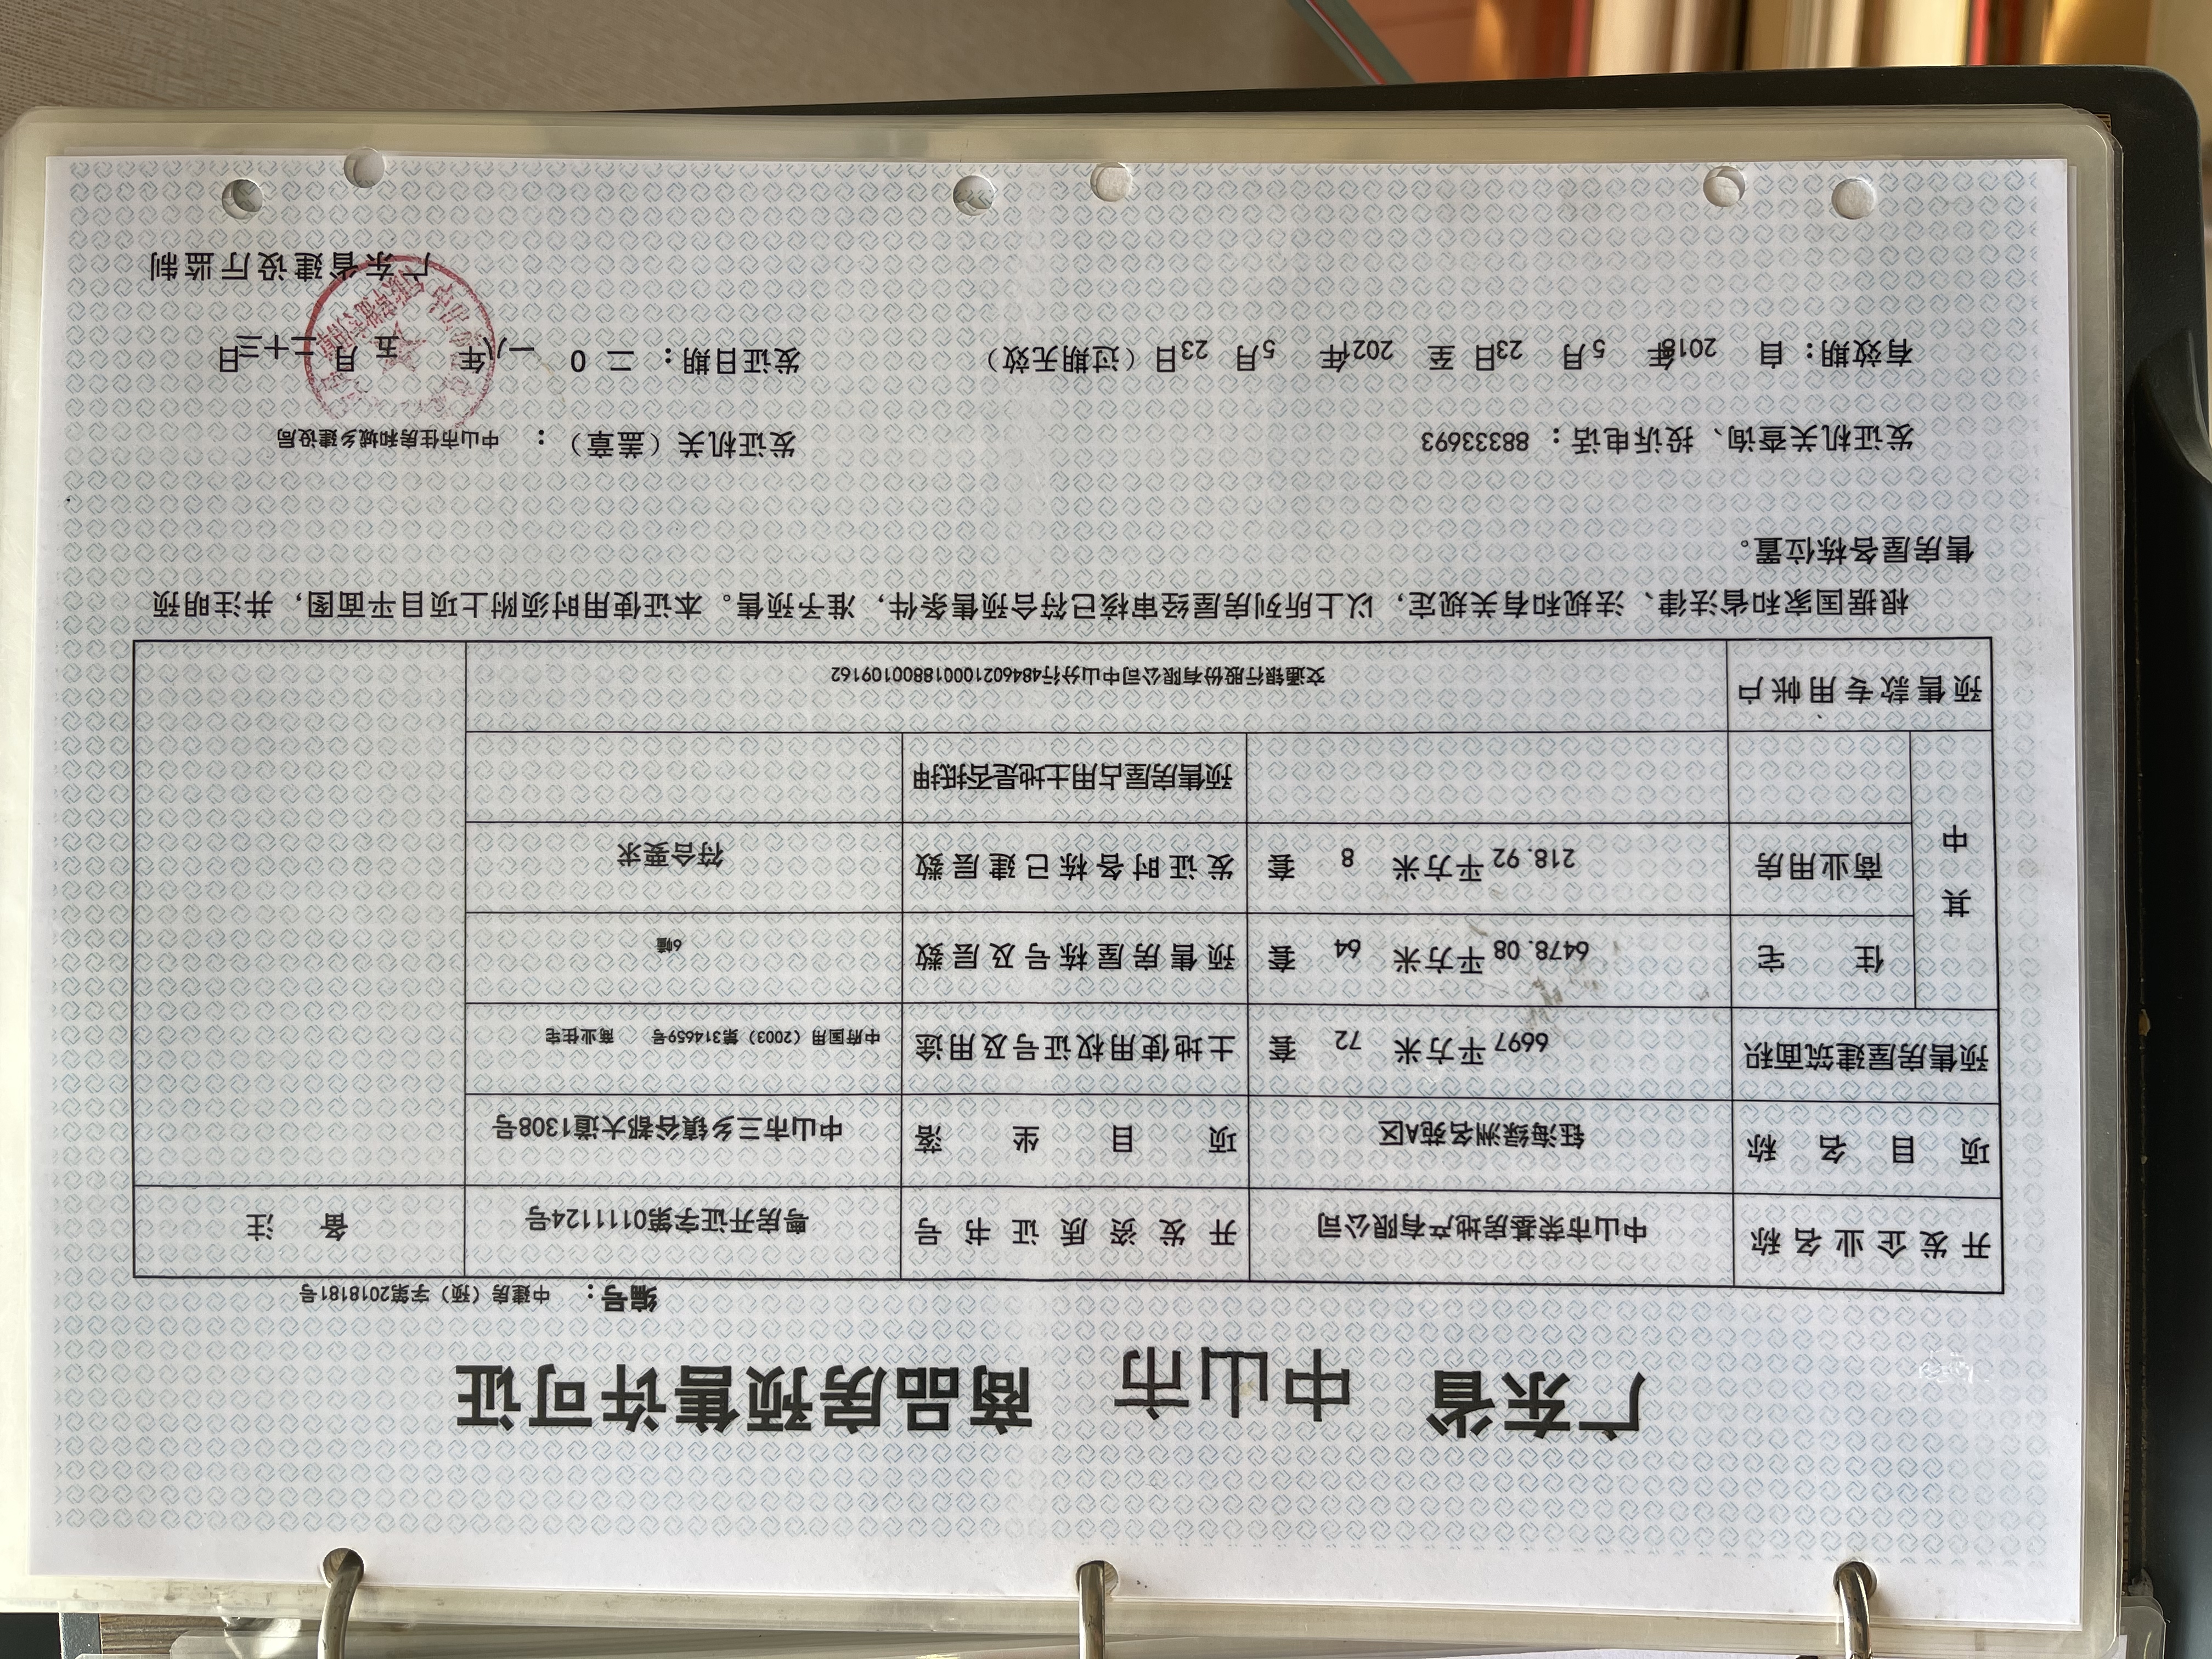 广东省 中山市 商品房预售许可证
编号: 中建房（预）字第2018181号
开发企业名称 中山市荣基房地产有限公司 开发资质证书号 粤房开证字第0111124号 备注
项目名称 钰海绿洲名苑A区 项目坐落 中山市三乡镇谷都大道1308号
预售房屋建筑面积 6697平方米 72 套 土地使用权证号及用途 中府国用（2003）第314659号 商业住宅
其中 住宅 6478.08平方米 64 套 预售房屋栋号及层数 6幢
商业用房 218.92平方米 8 套 发证时各栋已建层数 符合要求
预售房屋占用土地是否抵押
预售款专用帐户 交通银行股份有限公司中山分行484602100018800109162
根据国家和省法律、法规和有关规定，以上所列房屋经审核已符合预售条件，准予预售。本证使用时须附上项目平面图，并注明预
售房屋各栋位置。
发证机关查询、投诉电话：88333693 发证机关（盖章）：中山市住房和城乡建设局
有效期：自 2018年 5月 23日 至 2021年 5月 23日（过期无效） 发证日期：二0一八年 五 月二十三日
广东省建设厅监制